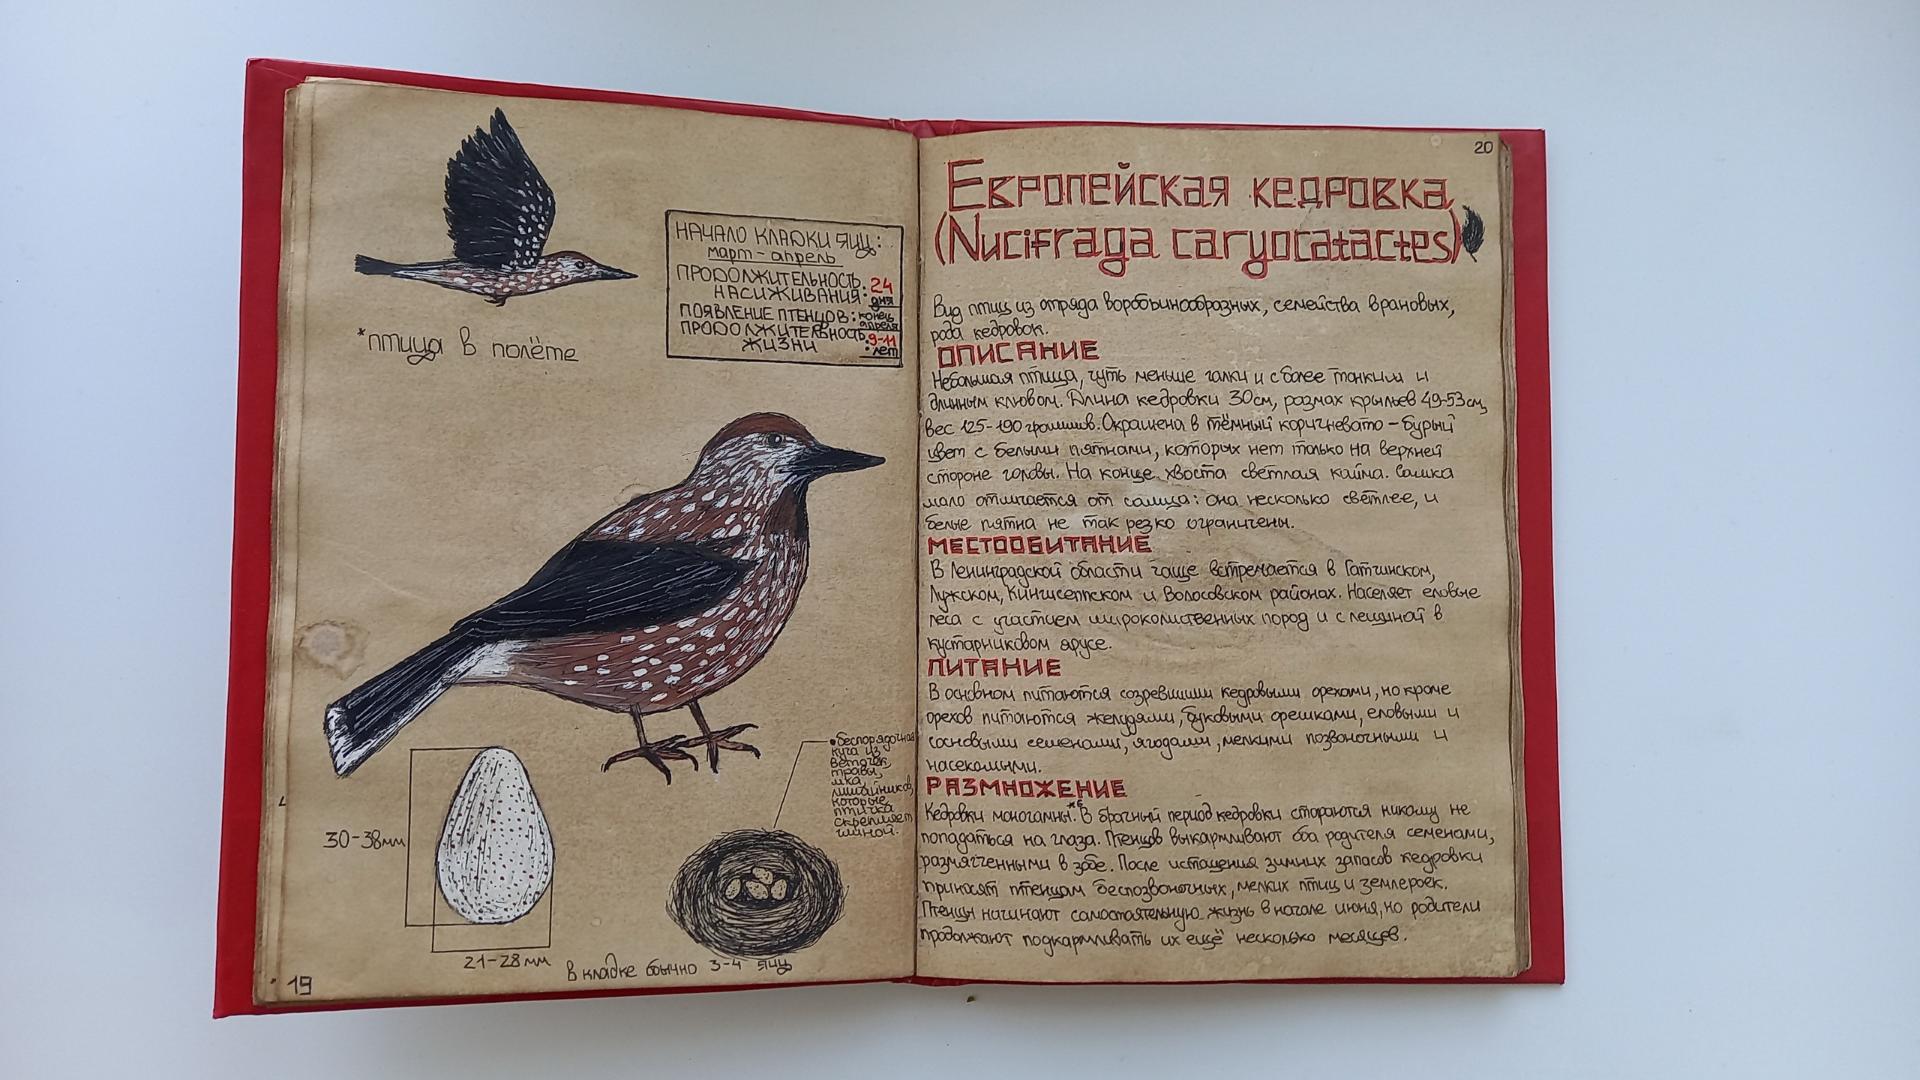 *птица в полёте
НАЧАЛО КЛАДКИ ЯИЦ:
март-апрель
ПРОДОЛЖИТЕЛЬНОСТЬ
НАСИЖИВАНИЯ: 24 дня
ПОЯВЛЕНИЕ ПТЕНЦОВ: конец апреля
ПРОДОЛЖИТЕЛЬНОСТЬ
ЖИЗНИ: 9-11 лет
•беспорядочная
куча из
веточек,
травы,
мха
лишайников,
которые
птичка
скрепляет
глиной.
30-38мм
21-28мм
в кладке обычно 3-4 яиц
19
20
Европейская кедровка
(Nucifraga caryocatactes)
Вид птиц из отряда воробьинообразных, семейства врановых,
рода кедровок.
ОПИСАНИЕ
Небольшая птица, чуть меньше галки и с более тонким и
длинным клювом. Длина кедровки 30см, размах крыльев 49-53см,
вес 125-190 граммов. Окрашена в тёмный коричневато-бурый
цвет с белыми пятнами, которых нет только на верхней
стороне головы. На конце хвоста светлая кайма. Самка
мало отличается от самца: она несколько светлее, и
белые пятна не так резко ограничены.
МЕСТООБИТАНИЕ
В Ленинградской области чаще встречается в Гатчинском,
Лужском, Кингисеппском и Волосовском районах. Населяет еловые
леса с участием широколиственных пород и с лещиной в
кустарниковом ярусе.
ПИТАНИЕ
В основном питаются созревшими кедровыми орехами, но кроме
орехов питаются желудями, буковыми орешками, еловыми и
сосновыми семенами, ягодами, мелкими позвоночными и
насекомыми.
РАЗМНОЖЕНИЕ
Кедровки моногамны.*6 В брачный период кедровки стараются никому не
попадаться на глаза. Птенцов выкармливают оба родителя семенами,
размягченными в зобе. После истощения зимних запасов кедровки
приносят птенцам беспозвоночных, мелких птиц и землероек.
Птенцы начинают самостоятельную жизнь в начале июня, но родители
продолжают подкармливать их ещё несколько месяцев.